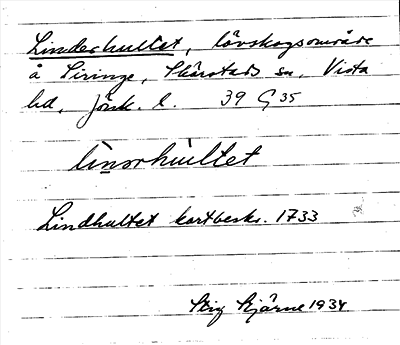 Lindeshultet, lövskogsområde
å Siringe, Skärstads sn, Vista
hd, Jönk. l. 39 G 35
Lindhultet kartbeskr. 1733
Stig Stjärne 1934